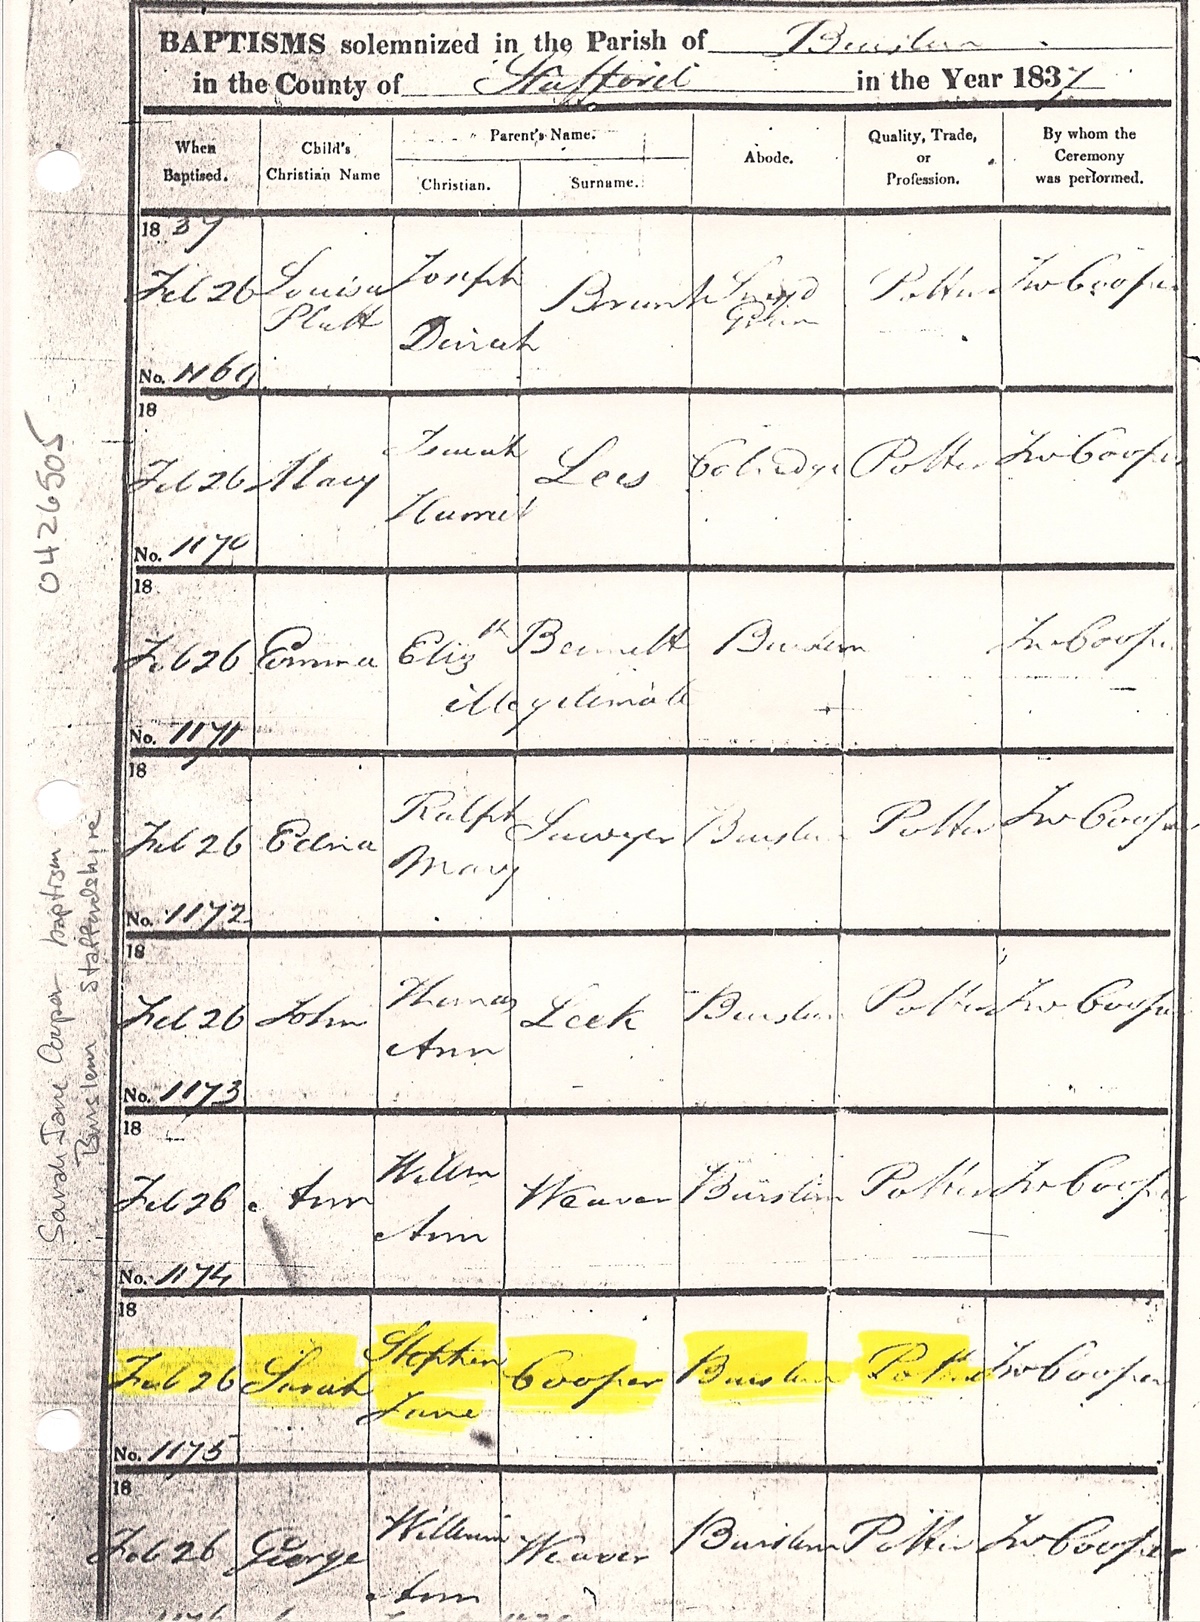 BAPTISMS solemnized in the Parish of Burslem
in the County of Stafford in the Year 1837
When Baptised.
Child's Christian Name
Parent's Name.
Christian.
Surname.
Abode.
Quality, Trade, or Profession.
By whom the Ceremony was performed.
1837
Feb 26 Louisa Platt Joseph Dinah Brunt Sneyd Green Potter Cooper
No. 1169
18
Feb 26 Mary Isaiah Harriet Lees Cobridge Potter Cooper
No. 1170
18
Feb 26 Emma Elizth Bennett Burslem Cooper
illegitimate
No. 1171
18
Feb 26 Edna Ralph Mary Sawyer Burslem Potter Cooper
No. 1172
18
Feb 26 John Thomas Ann Leek Burslem Potter Cooper
No. 1173
18
Feb 26 Ann Willm Ann Weaver Burslem Potter Cooper
No. 1174
18
Feb 26 Sarah Stephen Jane Cooper Burslem Potter Cooper
No. 1175
18
Feb 26 George William Ann Weaver Burslem Potter Cooper
0426505
Sarah Jane Cooper baptism
Burslem Staffordshire